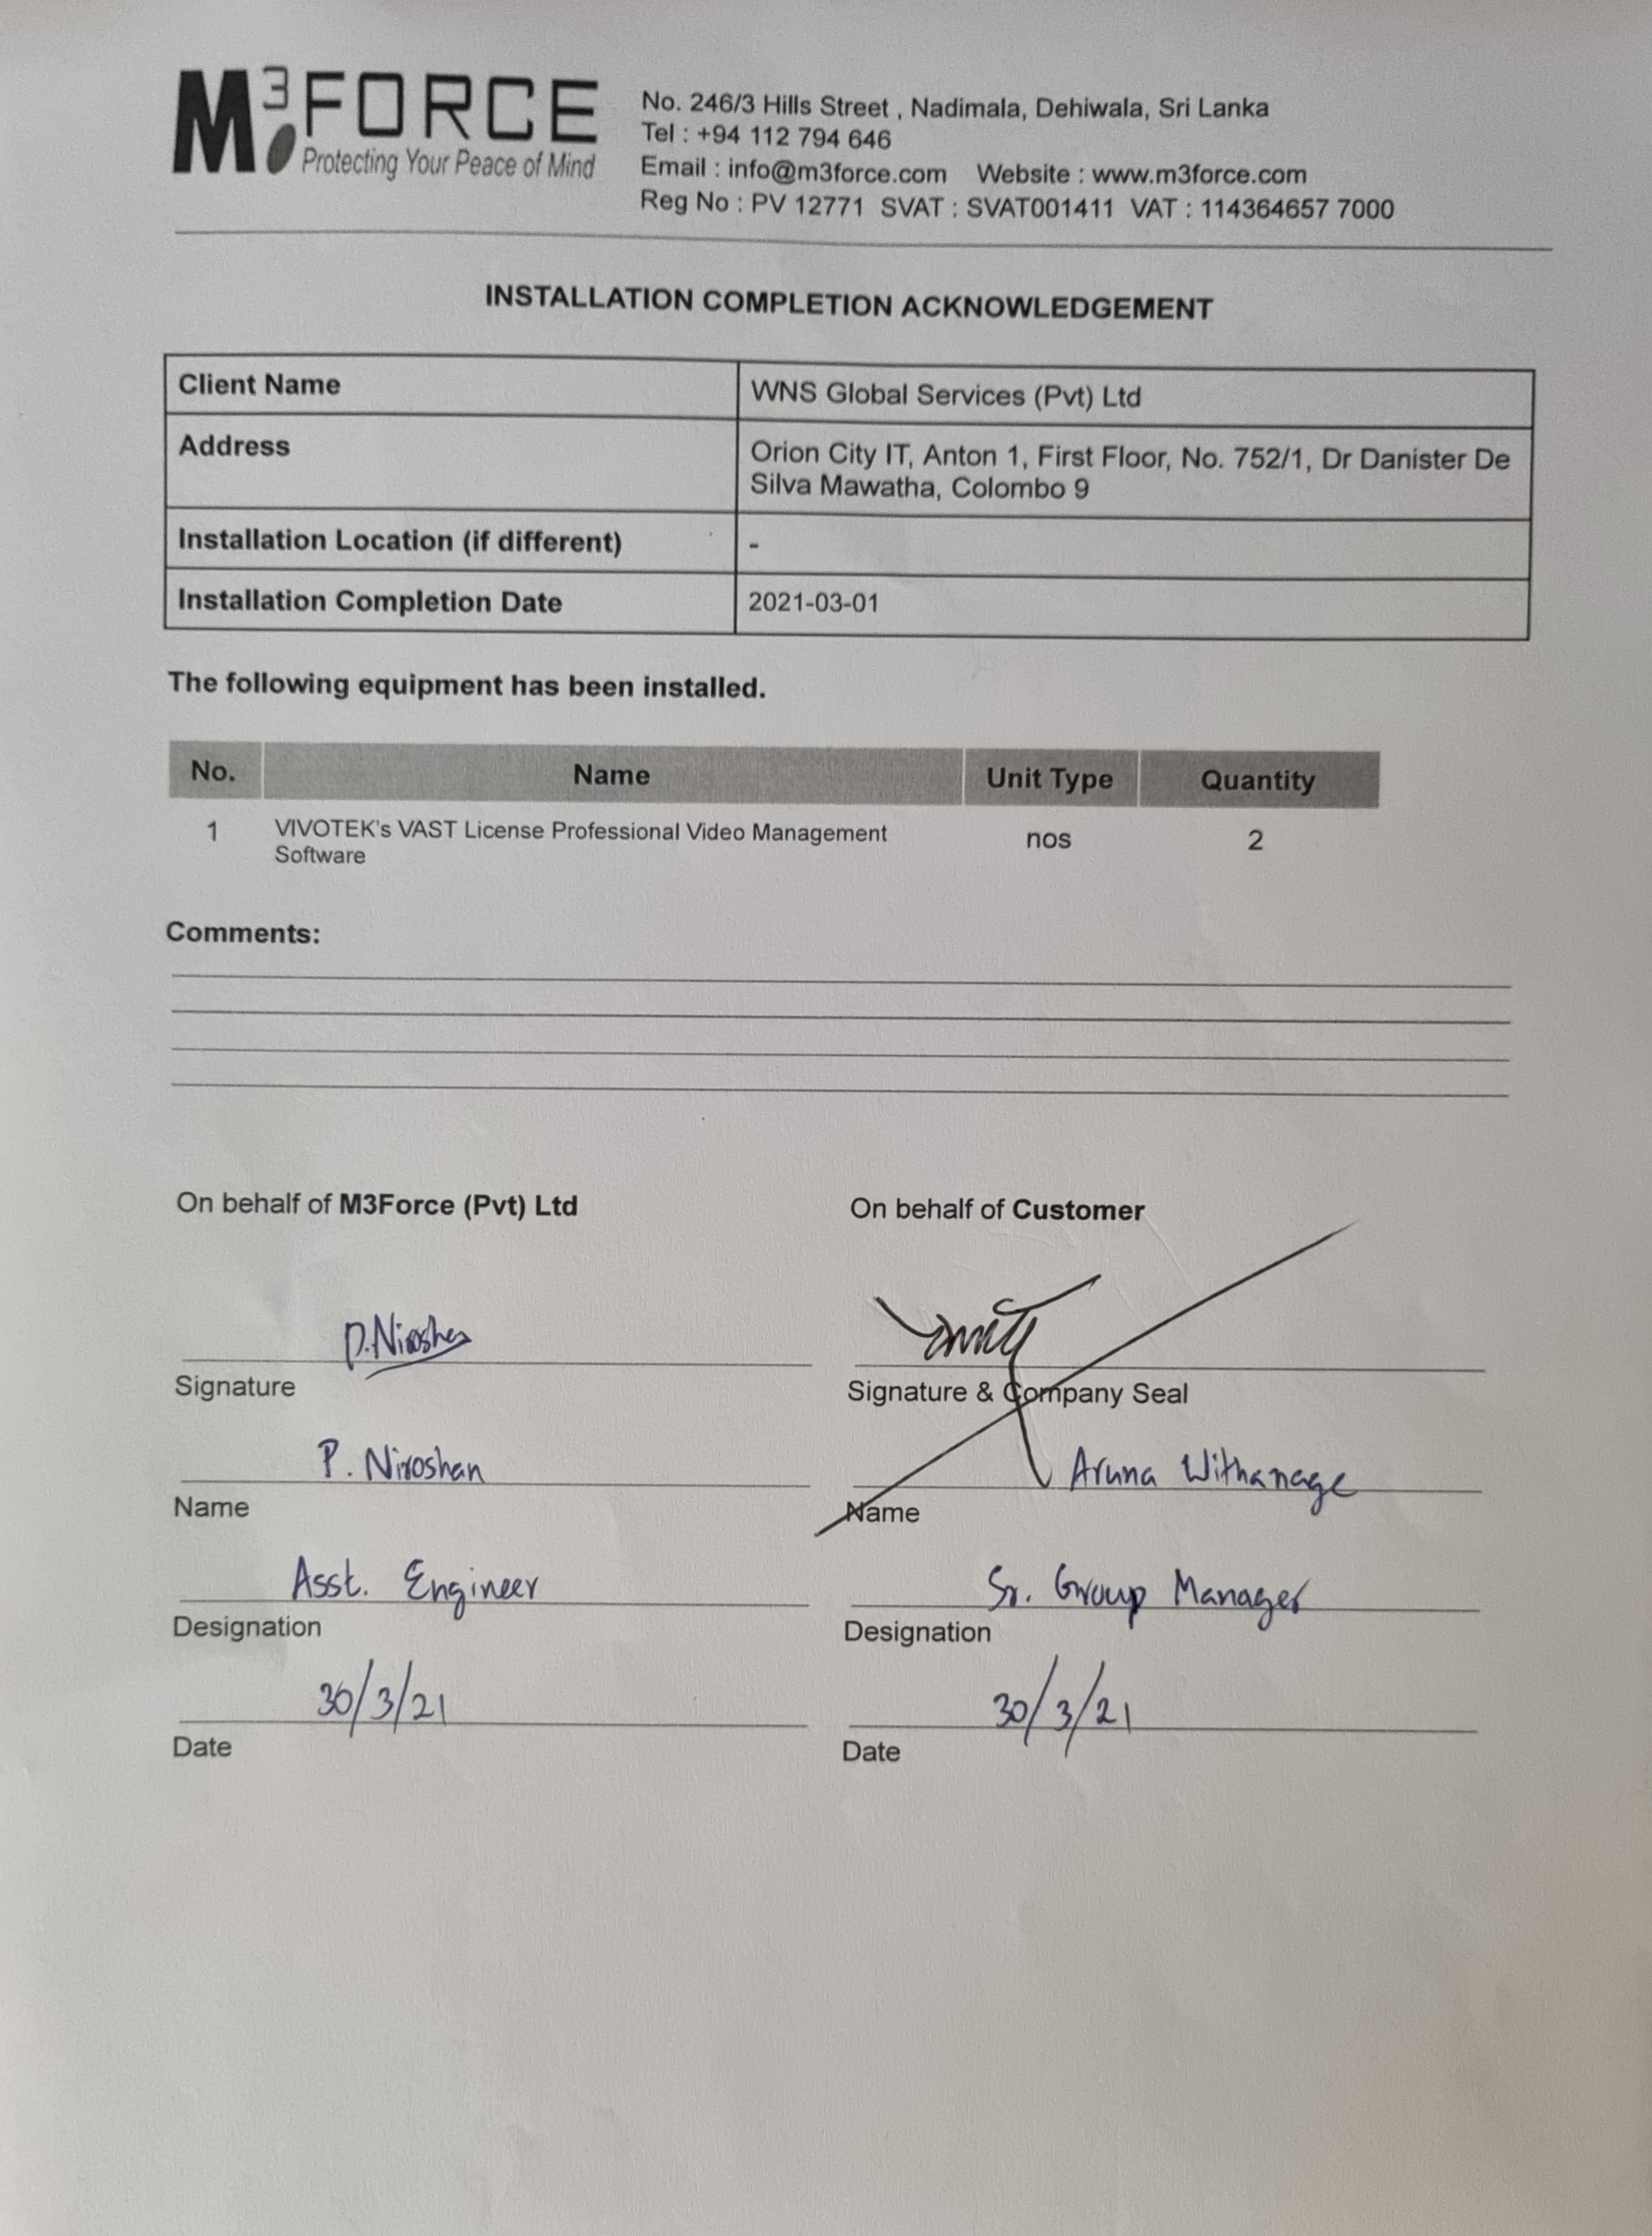 M3FORCE
Protecting Your Peace of Mind
No. 246/3 Hills Street , Nadimala, Dehiwala, Sri Lanka
Tel : +94 112 794 646
Email : info@m3force.com Website : www.m3force.com
Reg No : PV 12771 SVAT : SVAT001411 VAT : 114364657 7000
INSTALLATION COMPLETION ACKNOWLEDGEMENT
Client Name WNS Global Services (Pvt) Ltd
Address Orion City IT, Anton 1, First Floor, No. 752/1, Dr Danister De
Silva Mawatha, Colombo 9
Installation Location (if different) -
Installation Completion Date 2021-03-01
The following equipment has been installed.
No. Name Unit Type Quantity
1 VIVOTEK's VAST License Professional Video Management nos 2
Software
Comments:
On behalf of M3Force (Pvt) Ltd
P.Niroshan
Signature
P. Niroshan
Name
Asst. Engineer
Designation
30/3/21
Date
On behalf of Customer
Signature & Company Seal
Aruna Withanage
Name
Sr. Group Manager
Designation
30/3/21
Date